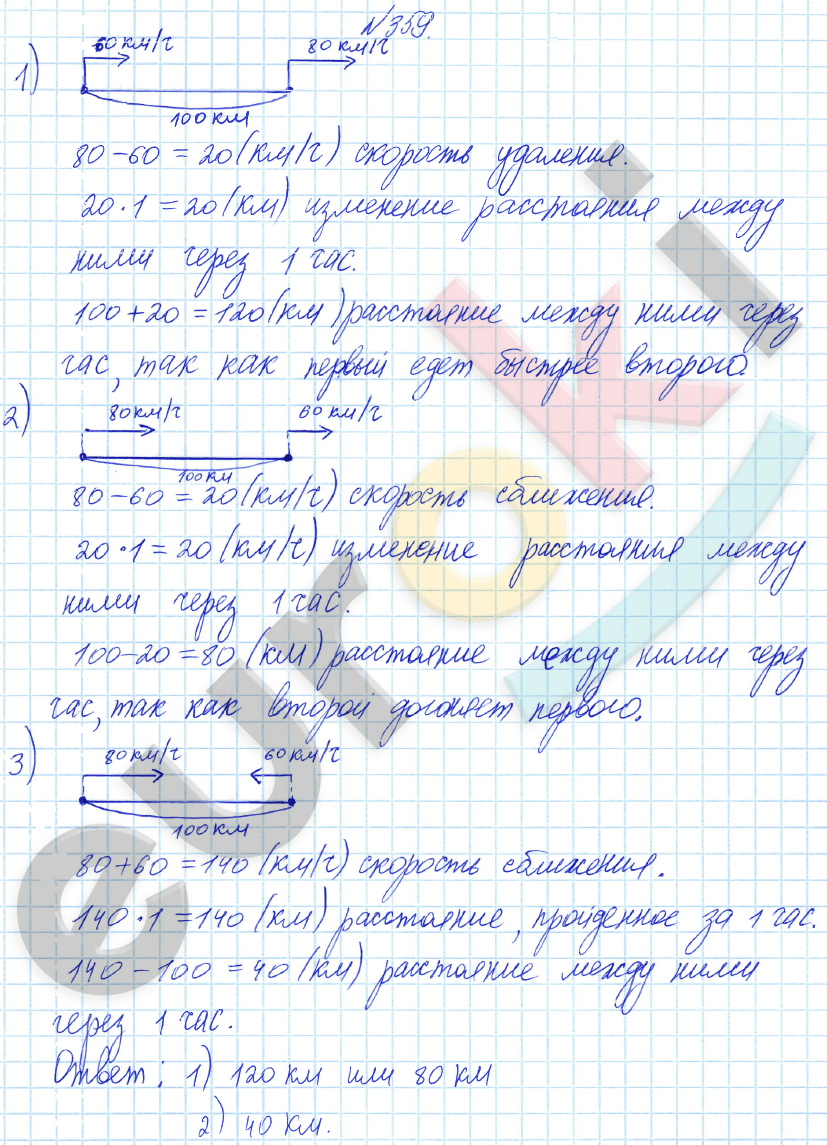 №359.
60 км/ч 80 км/ч
1)
100 км
80-60 = 20 (км/ч) скорость удаления.
20·1 = 20 (км) изменение расстояния между
ними через 1 час.
100+20 = 120 (км) расстояние между ними через
час, так как первый едет быстрее второго.
2) 80 км/ч 60 км/ч
100 км
80-60 = 20 (км/ч) скорость сближения.
20·1 = 20 (км/ч) изменение расстояния между
ними через 1 час.
100-20 = 80 (км) расстояние между ними через
час, так как второй догоняет первого.
3) 80 км/ч 60 км/ч
100 км
80+60 = 140 (км/ч) скорость сближения.
140·1 = 140 (км) расстояние, пройденное за 1 час.
140-100 = 40 (км) расстояние между ними
через 1 час.
Ответ: 1) 120 км или 80 км
2) 40 км.
euroki